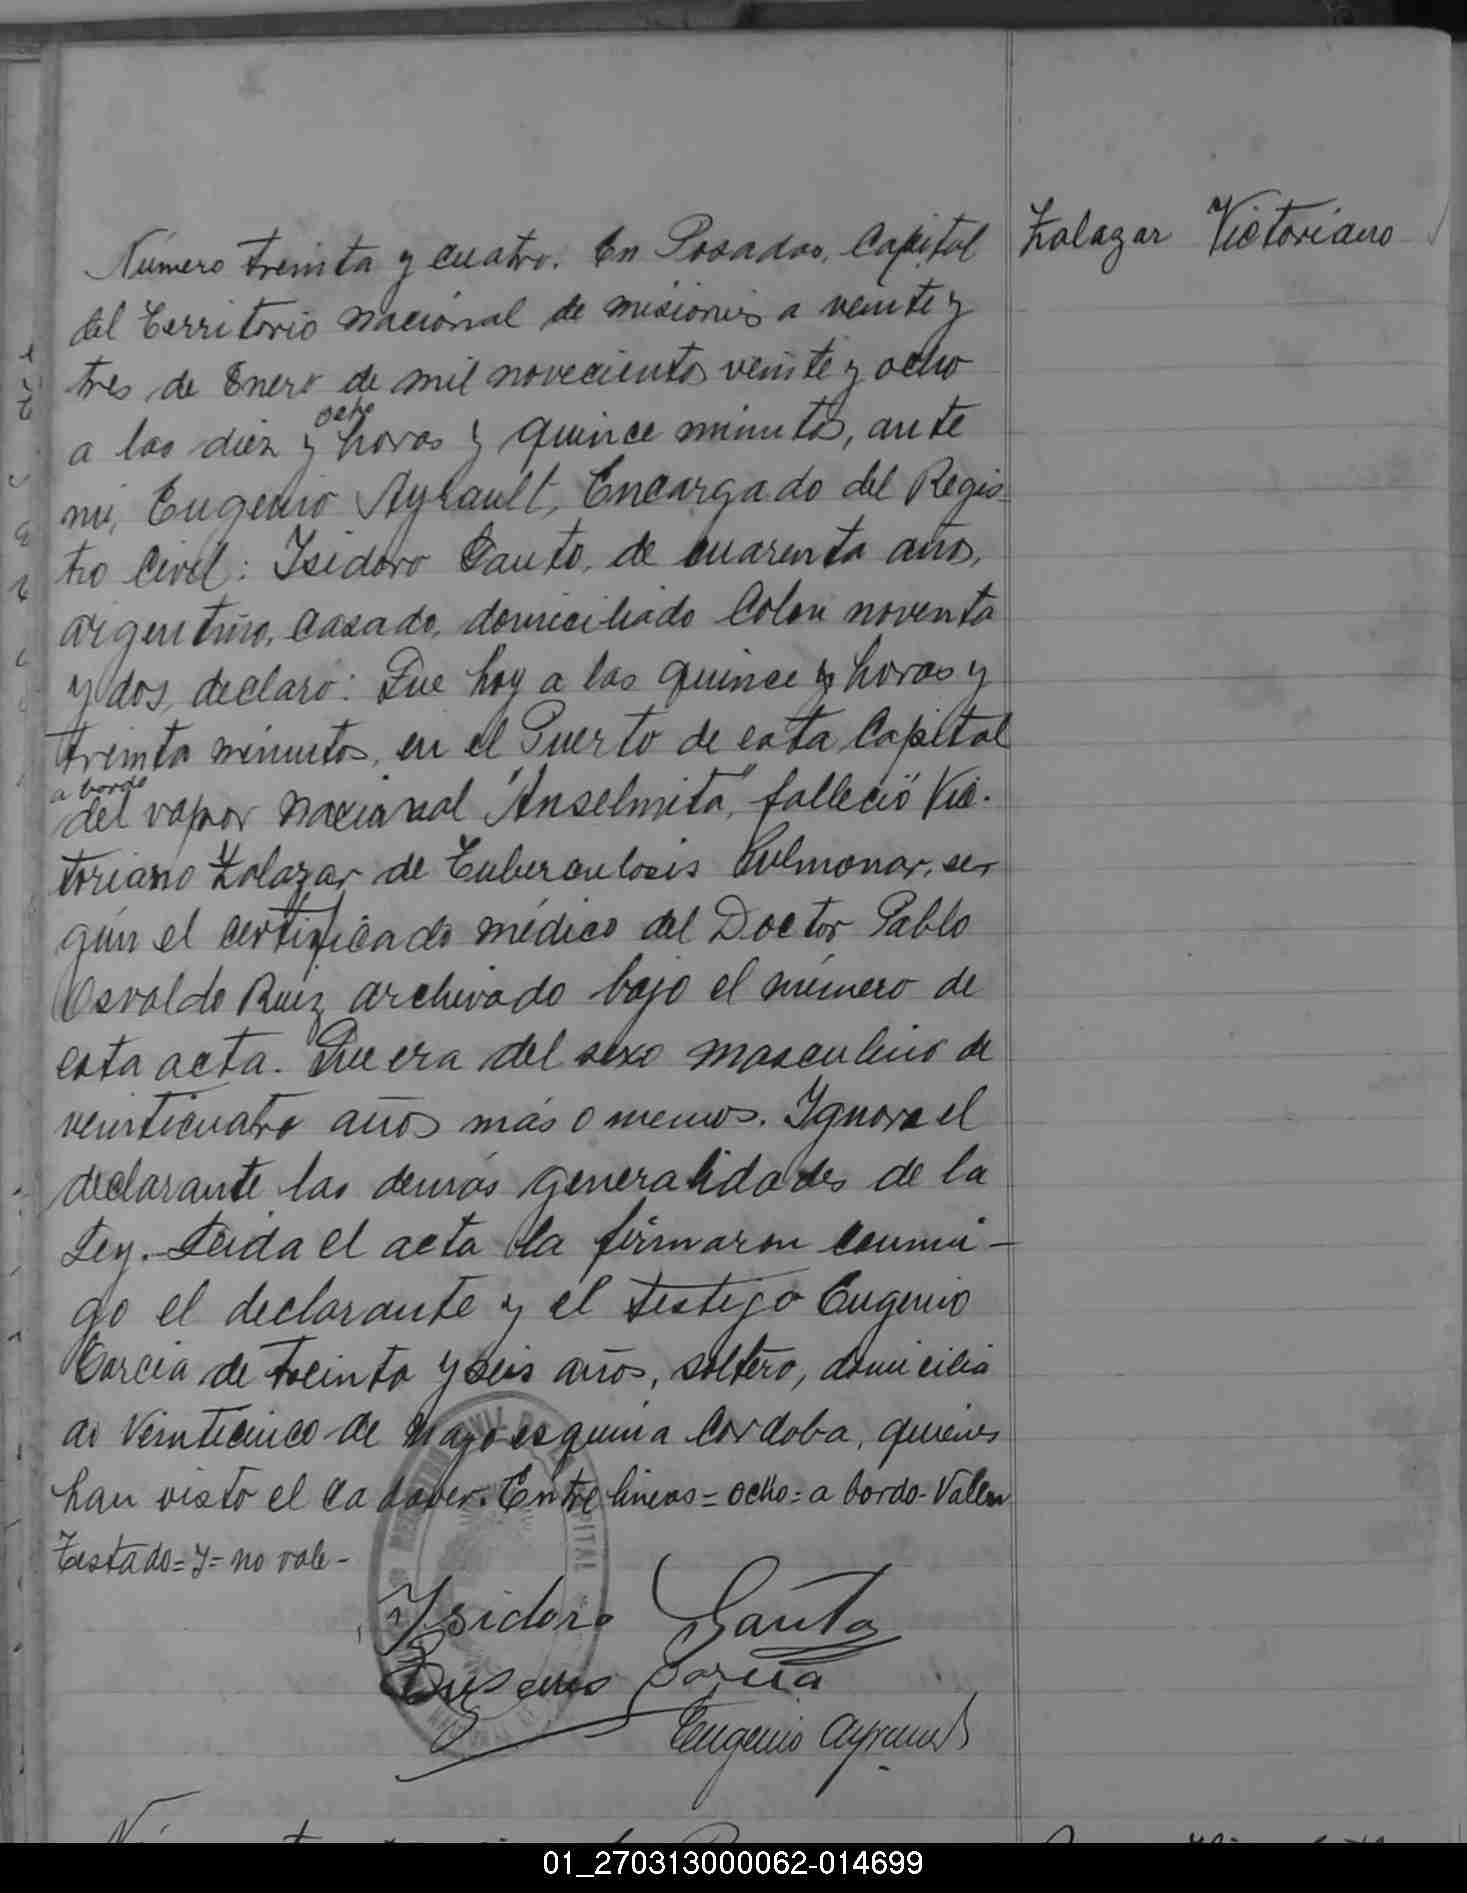 Zalazar Victoriano
Número treinta y cuatro. En Posadas, Capital
del Territorio nacional de misiones a veinte y
tres de Enero de mil novecientos veinte y ocho
a las diez y ocho horas y quince minutos, ante
mi, Eugenio Ayrault, Encargado del Regis-
tro Civil: Isidoro Gauto, de cuarenta años,
argentino, casado, domiciliado Colon noventa
y dos, declaró: Que hoy a las quince y horas y
treinta minutos, en el Puerto de esta Capital
a bordo
del vapor nacional "Anselmita", falleció Vic-
toriano Zalazar de Tuberculosis Pulmonar, se-
gún el certificado médico del Doctor Pablo
Osvaldo Ruiz archivado bajo el número de
esta acta. Que era del sexo masculino de
veinticuatro años más o menos. Ignora el
declarante las demás generalidades de la
Ley. Leida el acta la firmaron conmi-
go el declarante y el testigo Eugenio
Garcia de treinta y seis años, soltero, domicilia
do Veinticinco de Mayo esquina Cordoba, quienes
han visto el cadaver. Entre lineas = ocho = a bordo - Valen
Testado = y = no vale -
REGISTRO CIVIL DE LA CAPITAL
Isidoro Gauto
Eugenio Garcia
Eugenio Ayrault
01_270313000062-014699